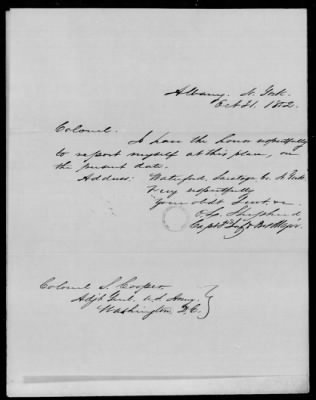 Albany. N. York.
Oct 21. 1852.
Colonel.
I have the honor respectfully
to report myself at this place, on
the present date.
Address: Waterford, Saratoga Co. N. York
Very respectfully
Your obdt Servt
O. L. Shepherd
Capt 3d Infy & Bvt Major.
Colonel S. Cooper
Adjt Genl. U.S. Army.
Washington D.C.